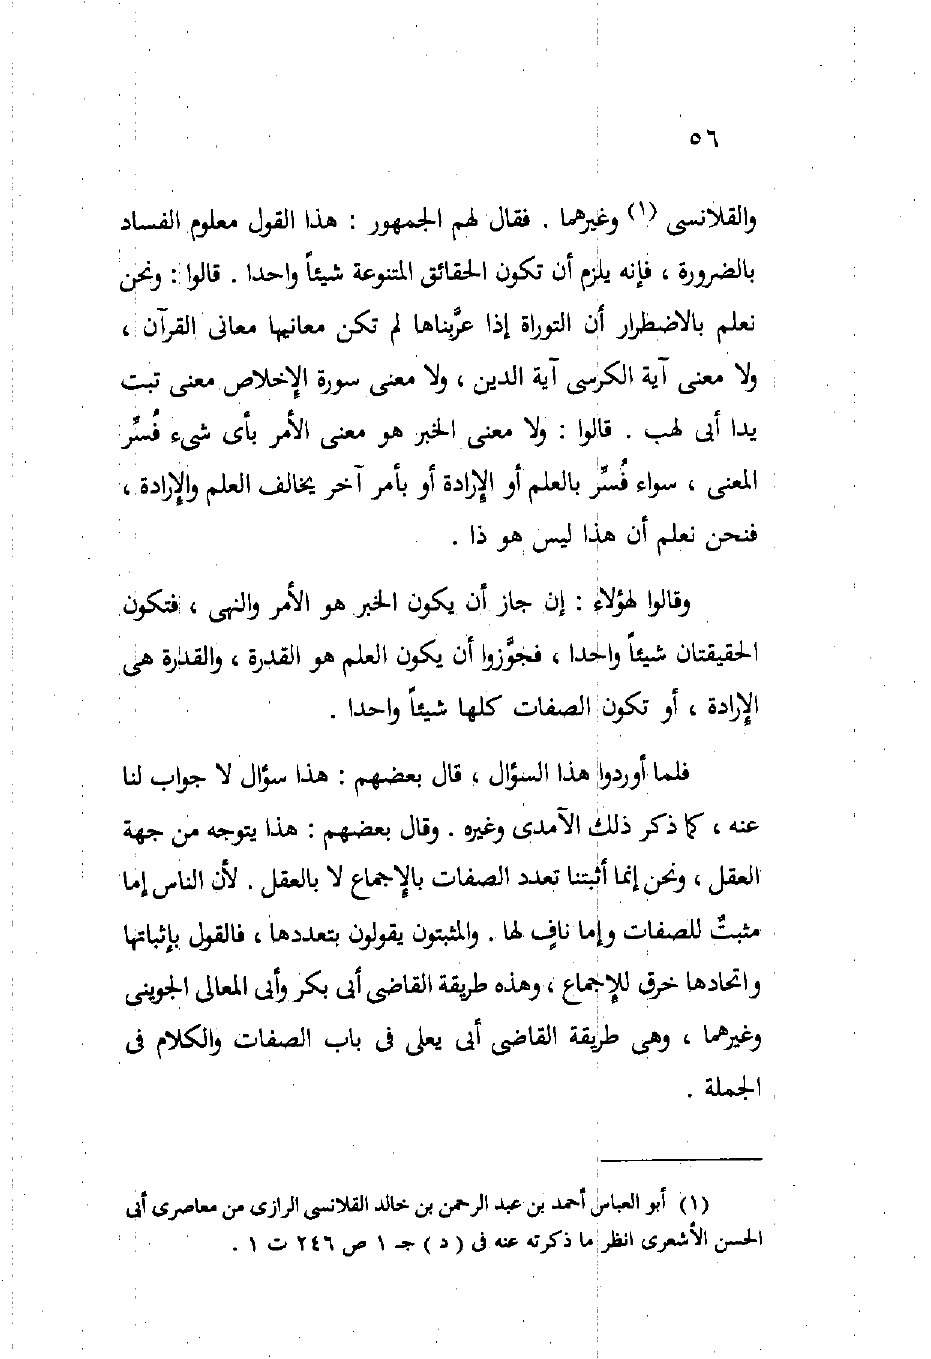 ٥٦
والقلانسى (١) وغيرهما . فقال لهم الجمهور : هذا القول معلوم الفساد
بالضرورة ، فإنه يلزم أن تكون الحقائق المتنوعة شيئاً واحدا . قالوا : ونحن
نعلم بالاضطرار أن التوراة إذا عرَّبناها لم تكن معانيها معانى القرآن ،
ولا معنى آية الكرسى آية الدين ، ولا معنى سورة الإخلاص معنى تبت
يدا أبى لهب . قالوا : ولا معنى الخبر هو معنى الأمر بأى شىء فُسِّر
المعنى ، سواء فُسِّر بالعلم أو الإرادة أو بأمر آخر يخالف العلم والإرادة ،
فنحن نعلم أن هذا ليس هو ذا .
وقالوا لهؤلاء : إن جاز أن يكون الخبر هو الأمر والنهى ، فتكون
الحقيقتان شيئاً واحدا ، فجوَّزوا أن يكون العلم هو القدرة ، والقدرة هى
الإرادة ، أو تكون الصفات كلها شيئاً واحدا .
فلما أوردوا هذا السؤال ، قال بعضهم : هذا سؤال لا جواب لنا
عنه ، كما ذكر ذلك الآمدى وغيره . وقال بعضهم : هذا يتوجه من جهة
العقل ، ونحن إنما أثبتنا تعدد الصفات بالإجماع لا بالعقل . لأن الناس إما
مثبتٌ للصفات وإما نافٍ لها . والمثبتون يقولون بتعددها ، فالقول بإثباتها
واتحادها خرق للإجماع ، وهذه طريقة القاضى أبى بكر وأبى المعالى الجوينى
وغيرهما ، وهى طريقة القاضى أبى يعلى فى باب الصفات والكلام فى
الجملة .
(١) أبو العباس أحمد بن عبد الرحمن بن خالد القلانسى الرازى من معاصرى أبى
الحسن الأشعرى انظر ما ذكرته عنه فى ( د ) جـ ١ ص ٢٤٦ ت ١ .